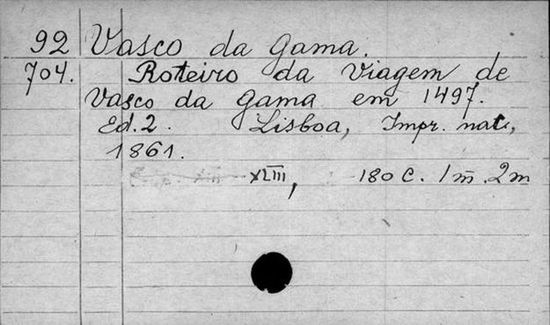 92 Vasco da Gama.
704. Roteiro da Viagem de
Vasco da Gama em 1497.
Ed. 2. Lisboa, Impr. nac,
1861.
XLIII, 180 C. 1 m. 2 m